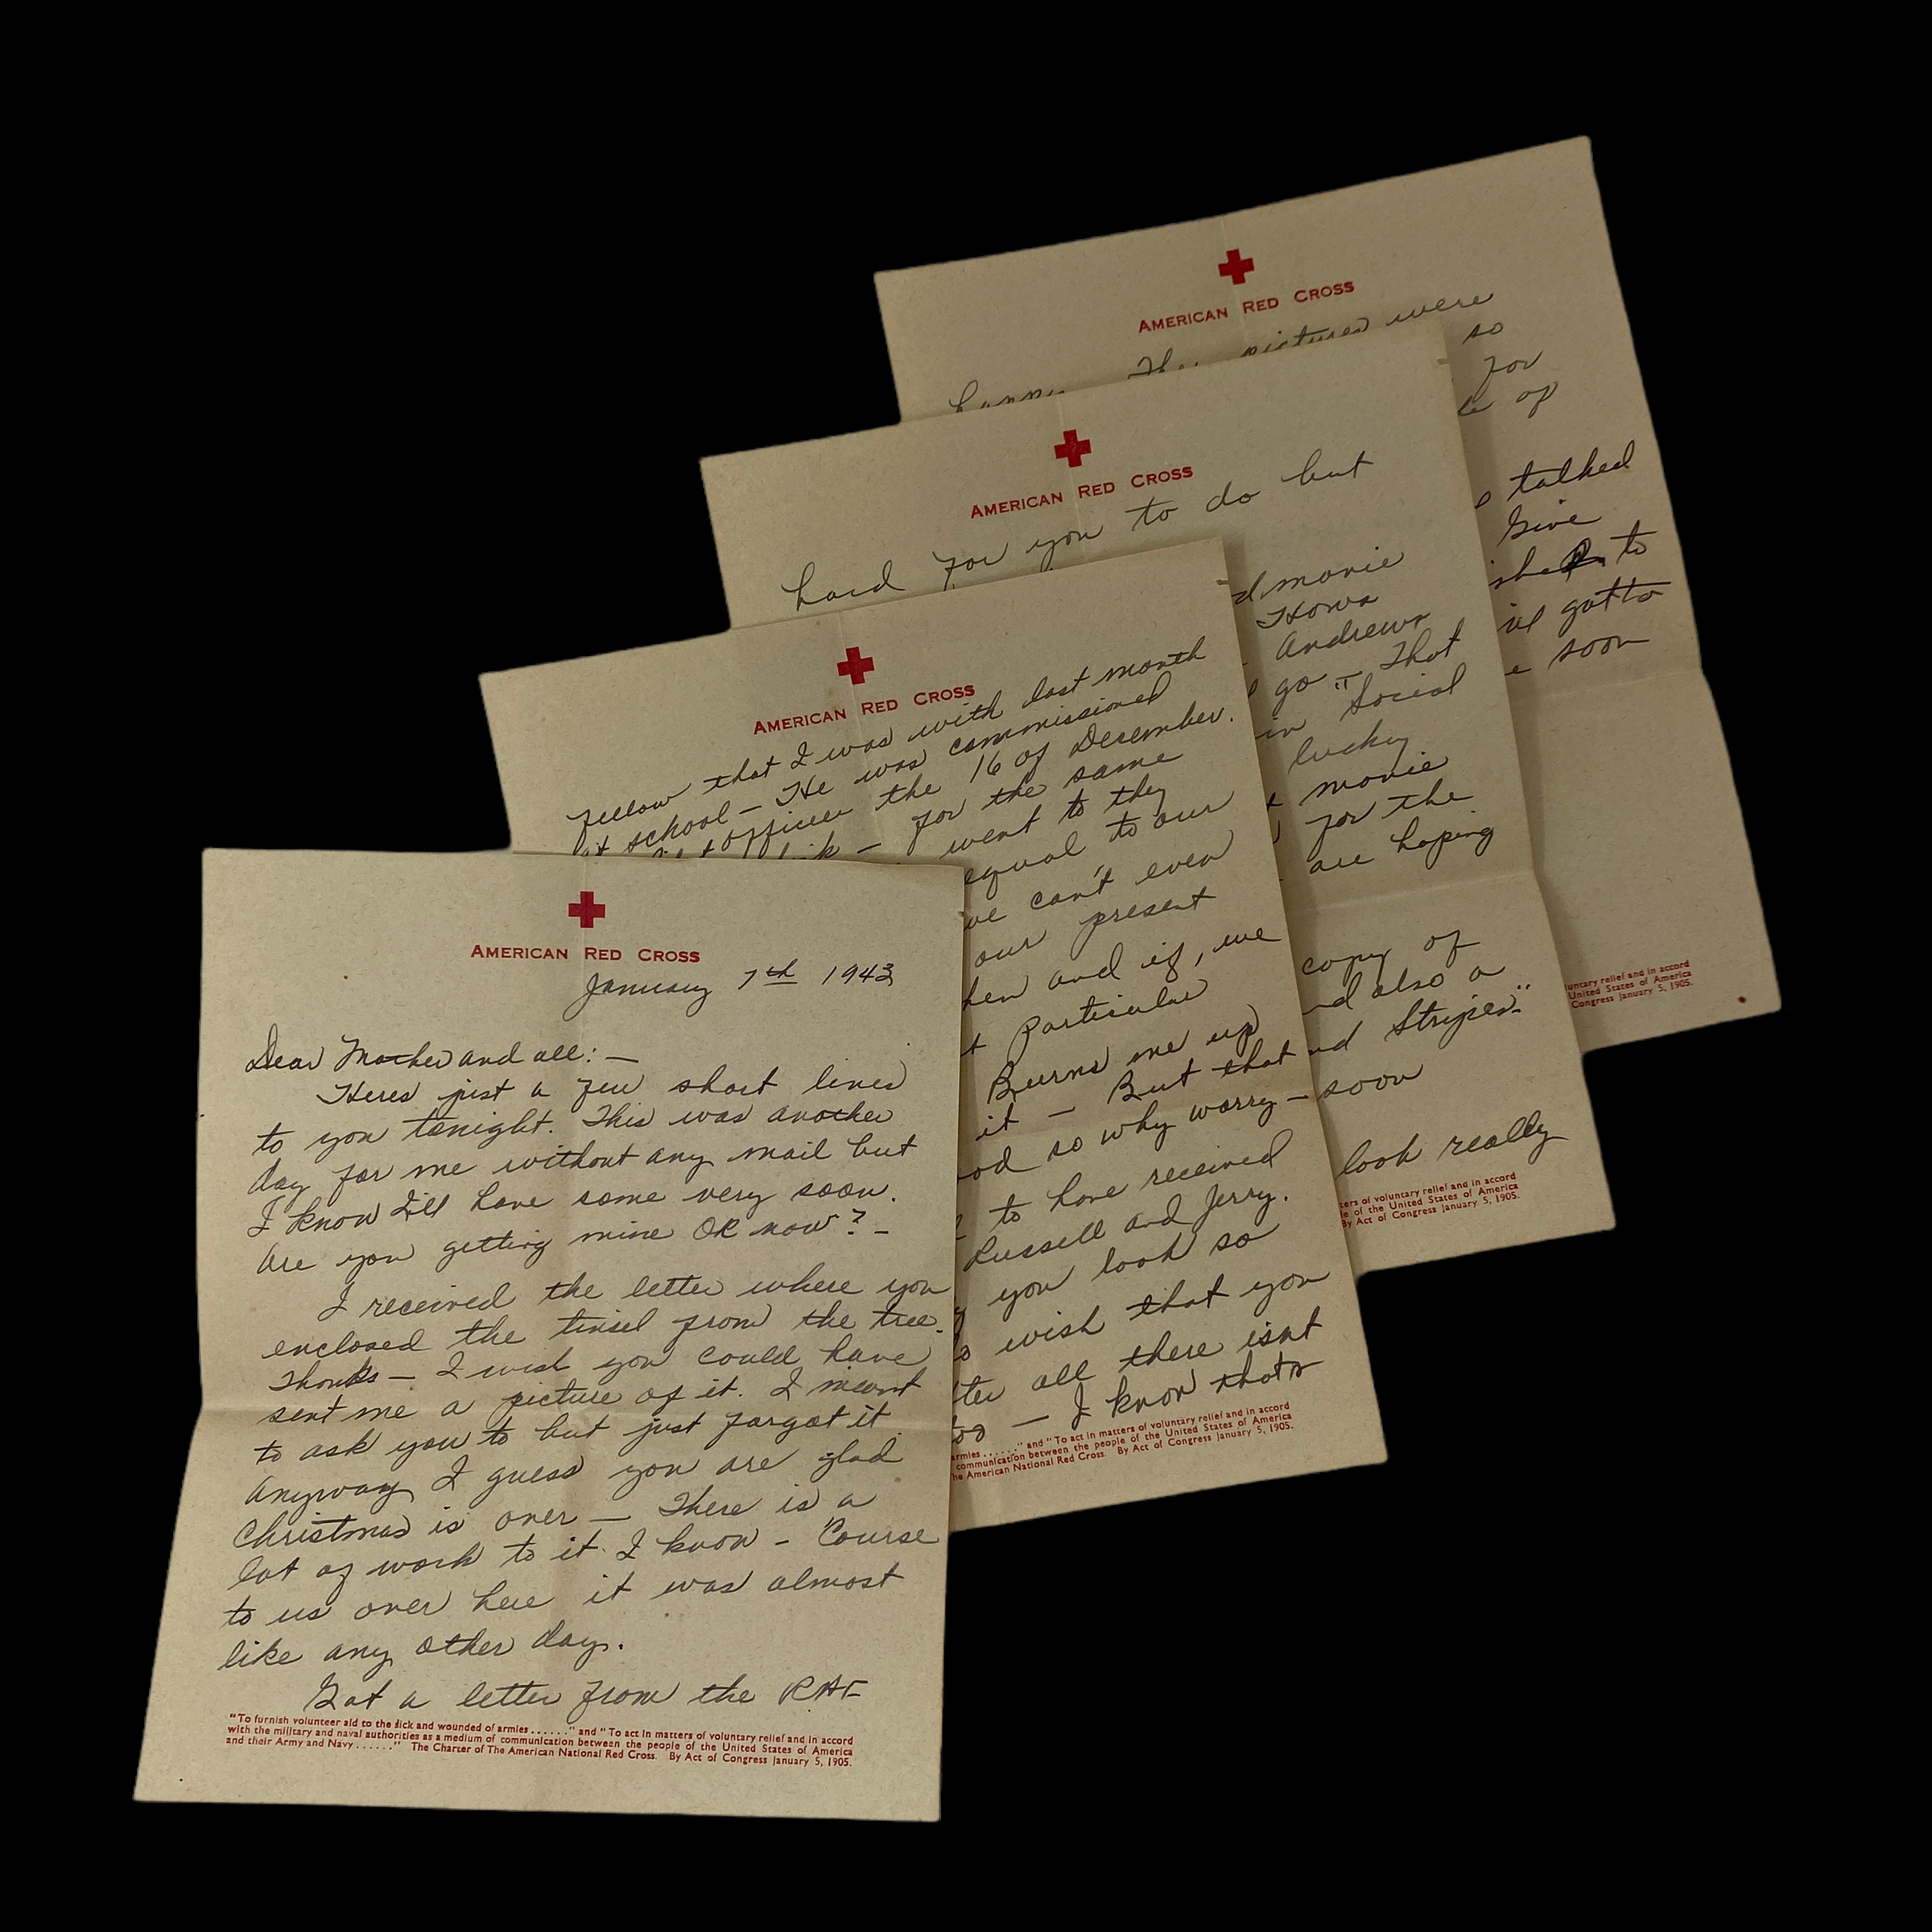 AMERICAN RED CROSS
January 7th 1943
Dear Mother and all: —
Heres just a few short lines
to you tonight. This was another
day for me without any mail but
I know I'll have some very soon.
Are you getting mine OK now? –
I received the letter where you
enclosed the tinsel from the tree.
Thanks — I wish you could have
sent me a picture of it. I meant
to ask you to but just forgot it
Anyway I guess you are glad
Christmas is over — There is a
lot of work to it I know – 'Course
to us over here it was almost
like any other day.
Got a letter from the RAF
"To furnish volunteer aid to the sick and wounded of armies ......" and "To act in matters of voluntary relief and in accord
with the military and naval authorities as a medium of communication between the people of the United States of America
and their Army and Navy ......" The Charter of The American National Red Cross. By Act of Congress January 5, 1905.
AMERICAN RED CROSS
fellow that I was with last month
at school — He was commissioned
officer the 16 of December.
for the same
went to they
equal to our
we can't even
our present
and if, we
particular
Burns me up
it — But that
so why worry —
to have received
Russell and Jerry.
you look so
wish that you
all there isnt
too — I know thats
armies ......" and "To act in matters of voluntary relief and in accord
communication between the people of the United States of America
The American National Red Cross. By Act of Congress January 5, 1905.
AMERICAN RED CROSS
hard for you to do but
movie
Andrews
go — That
in "Social
lucky
movie
for the
are hoping
copy of
and also a
and Stripes".
soon
look really
of voluntary relief and in accord
of the United States of America
By Act of Congress January 5, 1905.
AMERICAN RED CROSS
The pictures were
so
for
of
talked
Give
to
gotta
soon
voluntary relief and in accord
United States of America
Congress January 5, 1905.